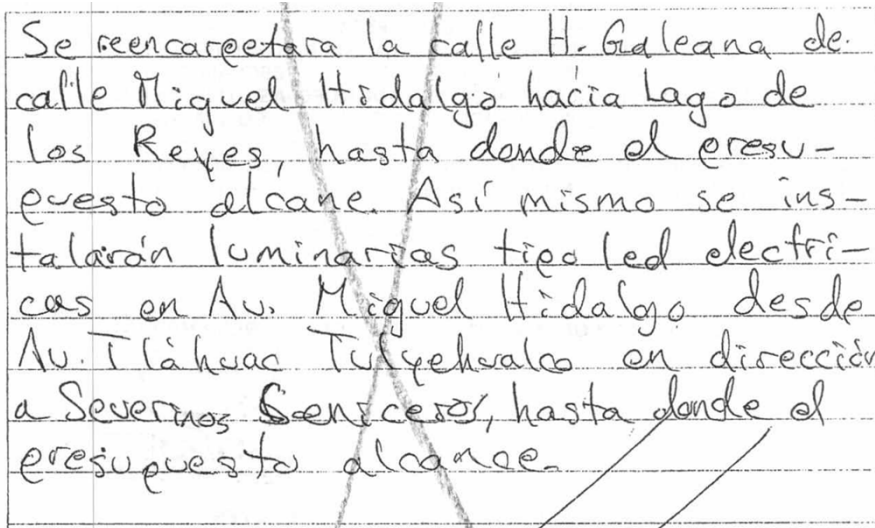 Se reencarpetara la calle H. Galeana de
calle Miguel Hidalgo hacia Lago de
los Reyes, hasta donde el presu-
puesto alcane. Así mismo se ins-
talarán luminarias tipo led electri-
cas en Av. Miguel Hidalgo desde
Av. Tláhuac Tulyehualco en dirección
a Severinos Seniceros, hasta donde el
presupuesto alcance.